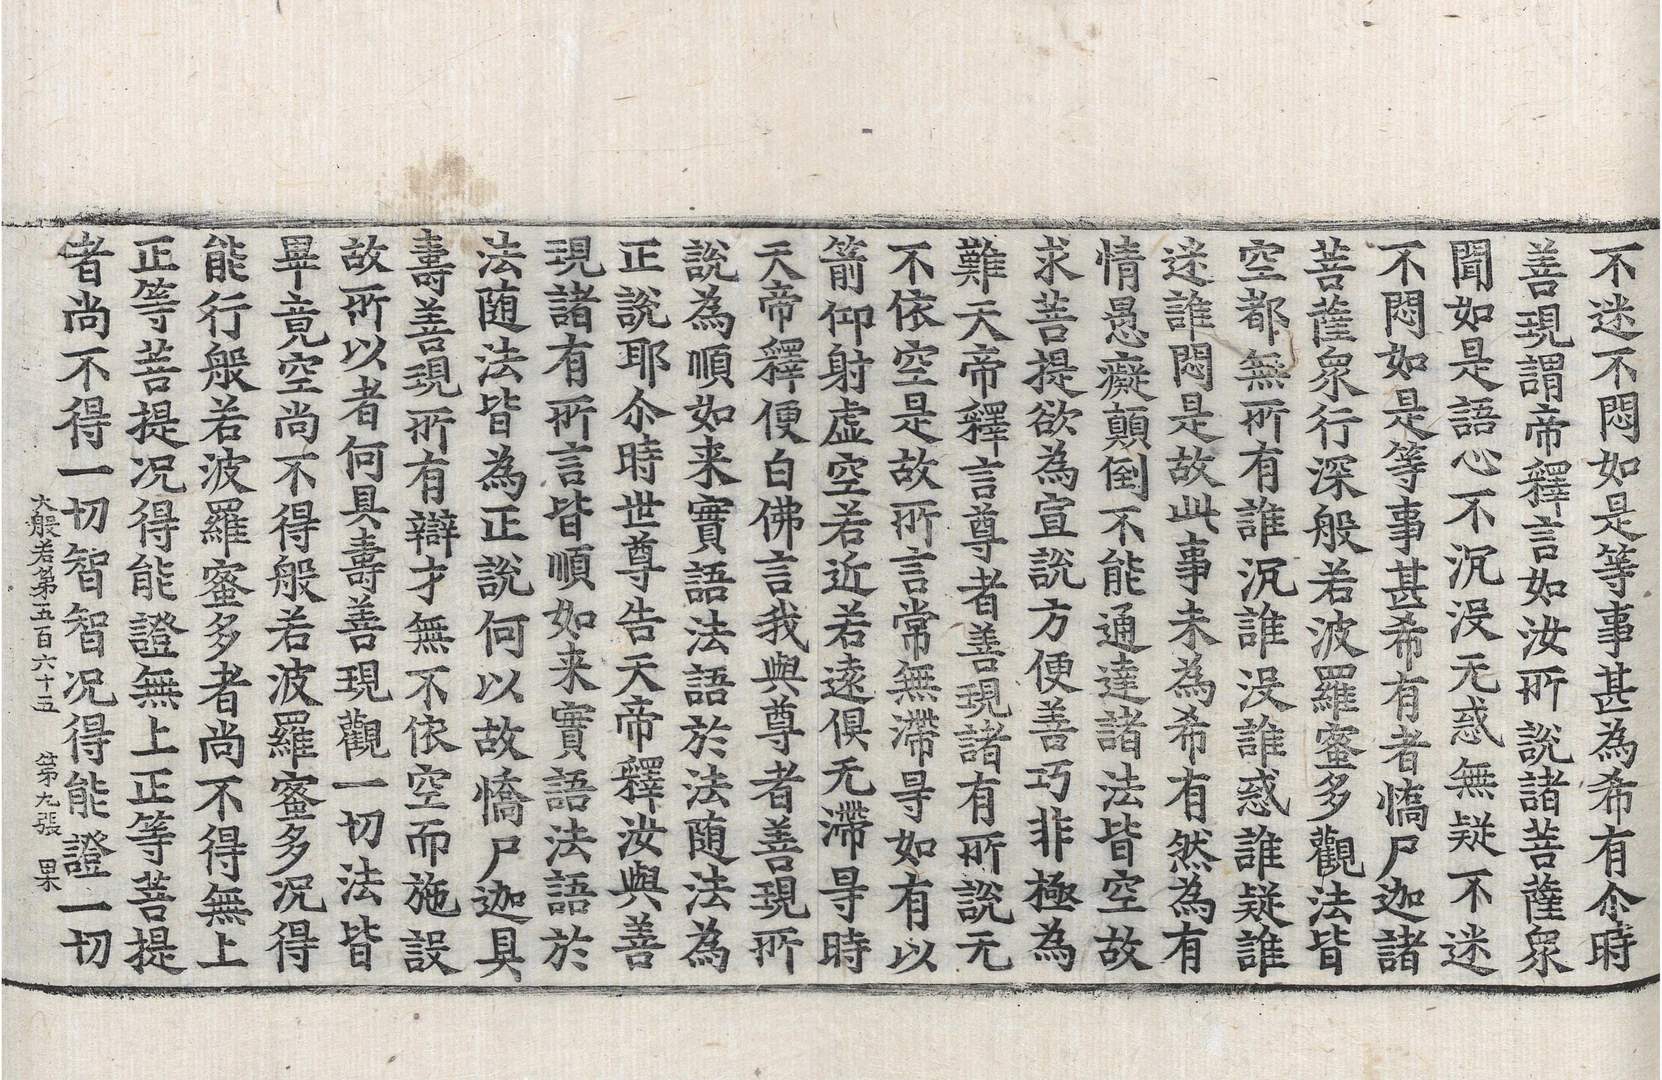 不迷不悶如是等事甚為希有尒時
善現謂帝釋言如汝所說諸菩薩衆
聞如是語心不沉沒无惑無疑不迷
不悶如是等事甚希有者憍尸迦諸
菩薩衆行深般若波羅蜜多觀法皆
空都無所有誰沉誰沒誰惑誰疑誰
迷誰悶是故此事未為希有然為有
情愚癡顛倒不能通達諸法皆空故
求菩提欲為宣說方便善巧非極為
難天帝釋言尊者善現諸有所說无
不依空是故所言常無滯㝵如有以
箭仰射虛空若近若遠俱无滯㝵時
天帝釋便白佛言我與尊者善現所
說為順如来實語法語於法随法為
正說耶尒時世尊告天帝釋汝與善
現諸有所言皆順如来實語法語於
法随法皆為正說何以故憍尸迦具
壽善現所有辯才無不依空而施設
故所以者何具壽善現觀一切法皆
畢竟空尚不得般若波羅蜜多况得
能行般若波羅蜜多者尚不得無上
正等菩提况得能證無上正等菩提
者尚不得一切智智况得能證一切
大般若第五百六十五 第九張 果